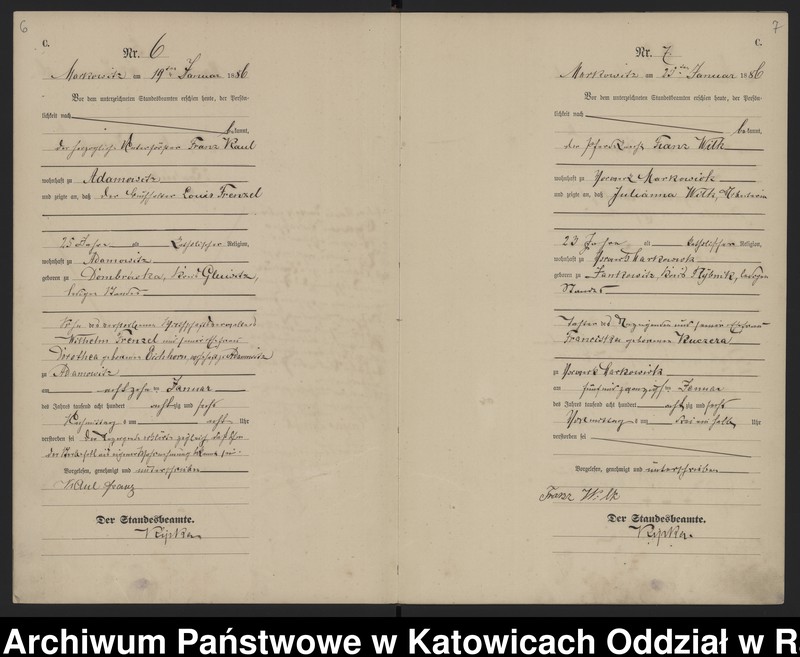 6
C.
Nr. 6
Markowitz am 19ten Januar 1886
Vor dem unterzeichneten Standesbeamten erschien heute, der Persön-
lichkeit nach
bekannt,
der herzogliche Franz Kaul
wohnhaft zu Adamowitz
und zeigte an, daß der Louis Frenzel
25 Jahre alt katholischer Religion,
wohnhaft zu Adamowitz
geboren zu Dombrowka, Kreis Gleiwitz,
ledigen Standes
Sohn des verstorbenen
Wilhelm Frenzel und seiner Ehefrau
Dorothea geborenen Eichhorn, wohnhaft zu Adamowitz
zu Adamowitz
am achtzehnten Januar
des Jahres tausend acht hundert achtzig und sechs
Nachmittags um acht Uhr
verstorben sei Der Anzeigende erklärte zugleich daß ihm
der Sterbefall aus eigener Wahrnehmung bekannt sei.
Vorgelesen, genehmigt und unterschrieben
Kaul Franz
Der Standesbeamte.
Kzipka.
7
C.
Nr. 7
Markowitz am 25ten Januar 1886
Vor dem unterzeichneten Standesbeamten erschien heute, der Persön-
lichkeit nach
bekannt,
der Pferdeknecht Franz Witk
wohnhaft zu Vorwerk Markowitz
und zeigte an, daß Julianna Witk,
23 Jahre alt katholischer Religion,
wohnhaft zu Vorwerk Markowitz
geboren zu Jankowitz, Kreis Rybnik, ledigen
Standes
Tochter des Anzeigenden und seiner Ehefrau
Franciska geborenen Kuczera
zu Vorwerk Markowitz
am fünfundzwanzigsten Januar
des Jahres tausend acht hundert achtzig und sechs
Vormittags um drei ein halb Uhr
verstorben sei
Vorgelesen, genehmigt und unterschrieben
Franz Witk
Der Standesbeamte.
Kzipka.
Archiwum Państwowe w Katowicach Oddział w R